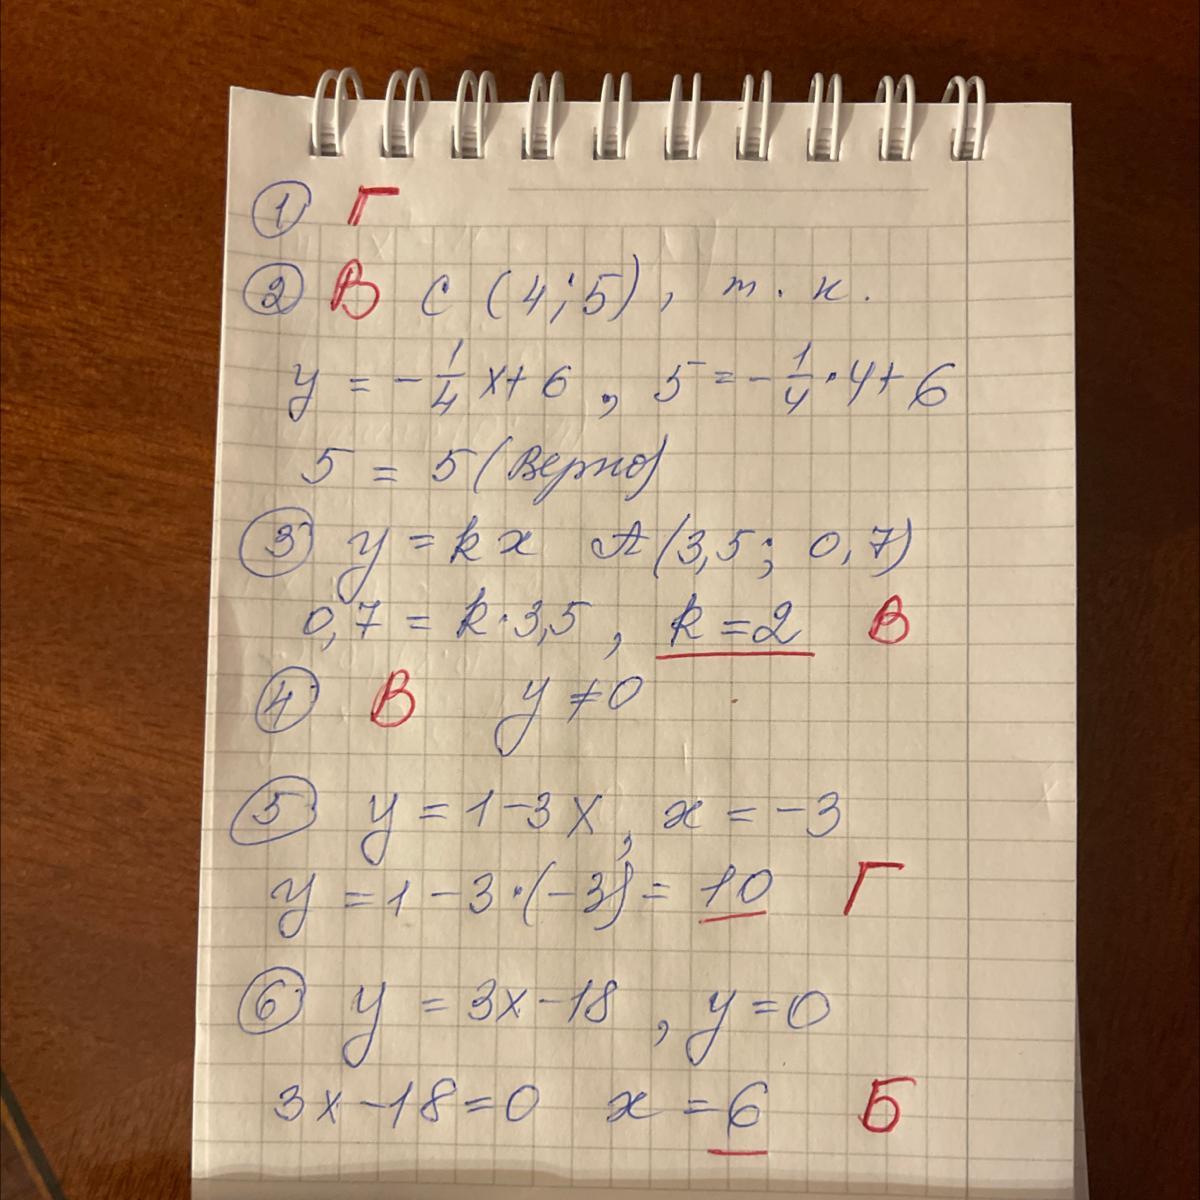 ① Г
② В С (4;5), т.к.
у = -1/4 х + 6, 5 = -1/4 · 4 + 6
5 = 5 (верно)
③ у = kx А(3,5; 0,7)
0,7 = k · 3,5, k = 2 В
④ В у ≠ 0
⑤ у = 1 - 3х, х = -3
у = 1 - 3 · (-3) = 10 Г
⑥ у = 3х - 18, у = 0
3х - 18 = 0 х = 6 Б